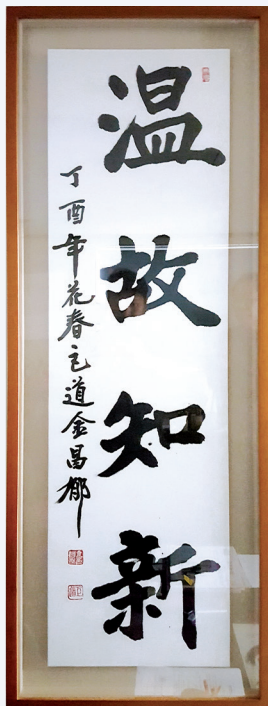 温故知新
丁酉年花春 道金昌郁